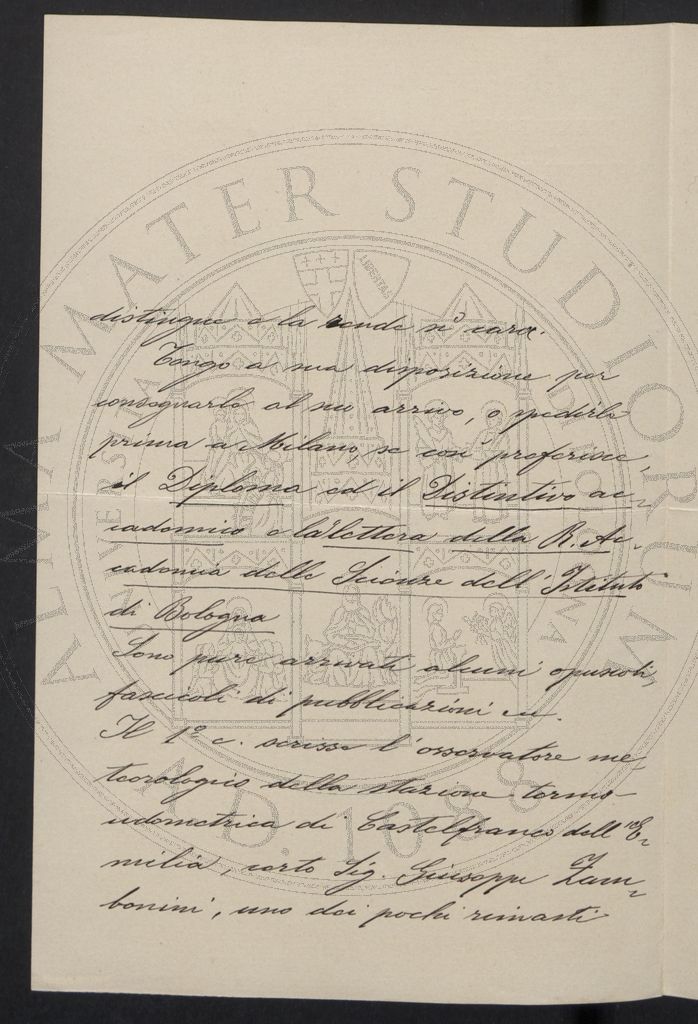 distingue e la rende sì cara.
Tengo a sua disposizione per
consegnarlo al suo arrivo, o spedirlo
prima a Milano, se così preferisce,
il Diploma ed il Distintivo ac-
cademico e la lettera della R. Ac-
cademia delle Scienze dell'Istituto
di Bologna
Sono pure arrivati alcuni opuscoli,
fascicoli di pubblicazioni
Il 1º c. scrisse l'osservatore me-
teorologico della stazione termo-
udometrica di Castelfranco dell'E-
milia, certo Sig. Giuseppe Zam-
bonini, uno dei pochi rimasti
ALMA MATER STUDIORUM
A.D. 1088
LIBERTAS